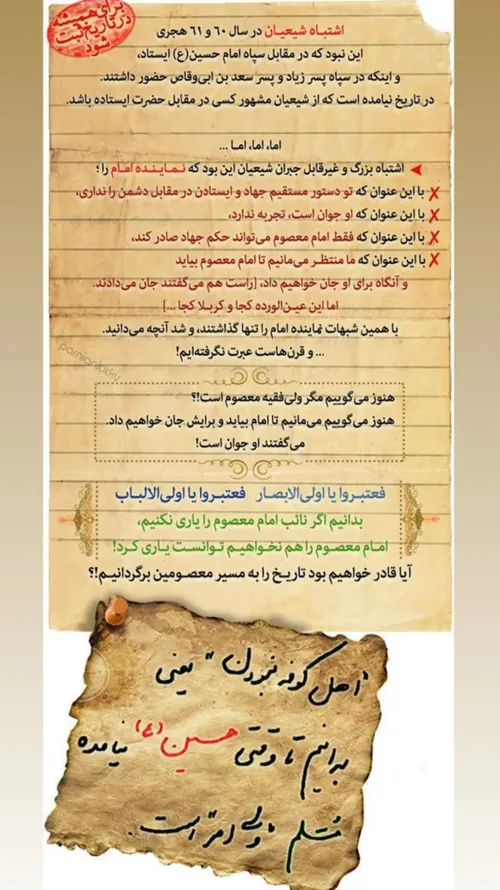 برای همیشه
در تاریخ ثبت
شود
اشتباه شیعیان در سال ۶۰ و ۶۱ هجری
این نبود که در مقابل سپاه امام حسین(ع) ایستاد،
و اینکه در سپاه پسر زیاد و پسر سعد بن ابی‌وقاص حضور داشتند.
در تاریخ نیامده است که از شیعیان مشهور کسی در مقابل حضرت ایستاده باشد.
اما، اما، اما ...
اشتباه بزرگ و غیرقابل جبران شیعیان این بود که نماینده امام را؛
✗ با این عنوان که تو دستور مستقیم جهاد و ایستادن در مقابل دشمن را نداری،
✗ با این عنوان که او جوان است، تجربه ندارد،
✗ با این عنوان که فقط امام معصوم می‌تواند حکم جهاد صادر کند،
✗ با این عنوان که ما منتظر می‌مانیم تا امام معصوم بیاید
و آنگاه برای او جان خواهیم داد، [راست هم می‌گفتند جان می‌دادند.
اما این عین‌الورده کجا و کربلا کجا ...]
با همین شبهات نماینده امام را تنها گذاشتند، و شد آنچه می‌دانید.
... و قرن‌هاست عبرت نگرفته‌ایم!
هنوز می‌گوییم مگر ولی‌فقیه معصوم است!؟
هنوز می‌گوییم می‌مانیم تا امام بیاید و برایش جان خواهیم داد.
می‌گفتند او جوان است!
فعتبروا یا اولی‌الابصار فعتبروا یا اولی‌الالباب
بدانیم اگر نائب امام معصوم را یاری نکنیم،
امام معصوم را هم نخواهیم توانست یاری کرد!
آیا قادر خواهیم بود تاریخ را به مسیر معصومین برگردانیم!؟
"اهل کوفه نبودن" یعنی
بدانیم تا وقتی حسین(ع) نیامده
مُسلم "ولی امر" است.